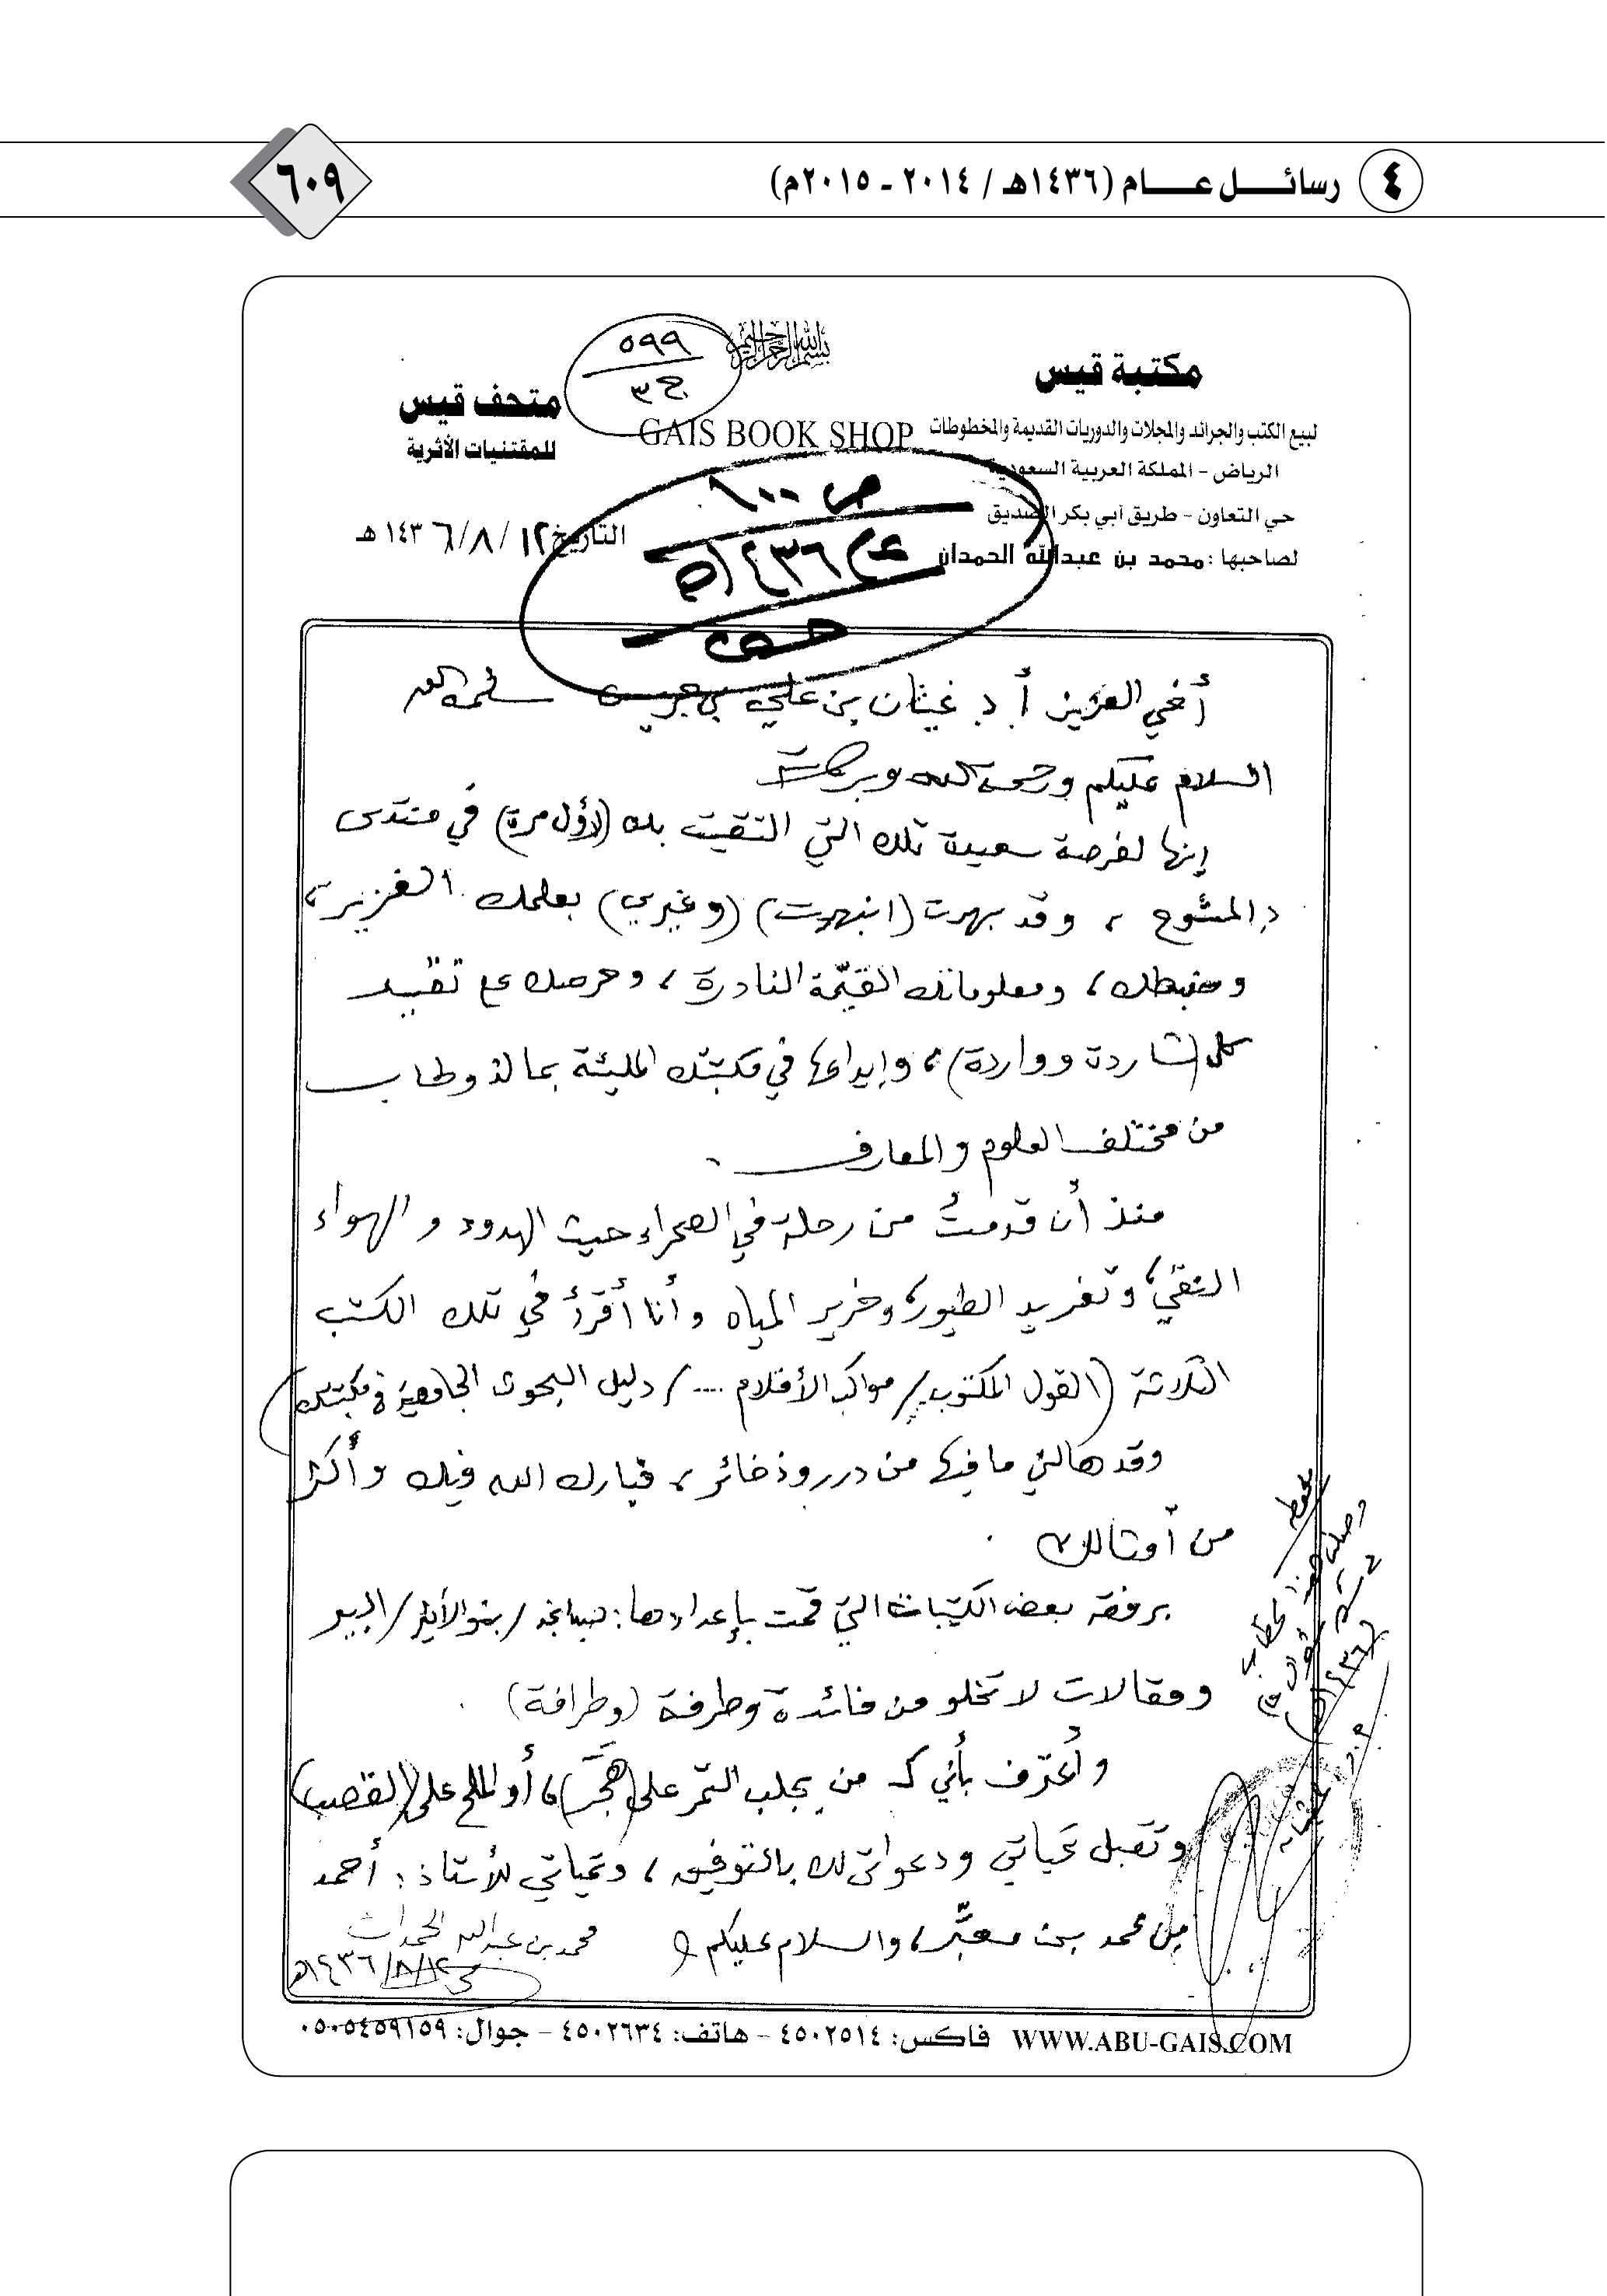 ٤ رسائل عام (١٤٣٦هـ / ٢٠١٤ - ٢٠١٥م)
٦٠٩
بسم الله الرحمن الرحيم
٥٩٩
ج٣
مكتبة قيس
لبيع الكتب والجرائد والمجلات والدوريات القديمة والمخطوطات
الرياض - المملكة العربية السعودية
حي التعاون - طريق أبي بكر الصديق
لصاحبها : محمد بن عبدالله الحمدان
GAIS BOOK SHOP
متحف قيس
للمقتنيات الأثرية
التاريخ ١٢ / ٨ / ١٤٣٦ هـ
ص ٦٠٠
عام ١٤٣٦هـ
أخي العزيز أ. د. غيثان بن علي بن جريس سلمه الله
السلام عليكم ورحمة الله وبركاته
إنها لفرصة سعيدة تلك التي التقيت بك (لأول مرة) في منتدى
د. المشوح ، وقد بهرت (انبهرت) (وغيري) بعلمك الغزير ،
وضبطك ، ومعلوماتك القيّمة النادرة ، وحرصك على تقييد
كل (شاردة وواردة) ، وإيداعها في مكتبتك المليئة بما لذ وطاب
من مختلف العلوم والمعارف .
منذ أن قدمتُ من رحلة في الصحراء حيث الهدوء والهواء
النقي ، وتغريد الطيور ، وخرير المياه وأنا أقرأ في تلك الكتب
الثلاثة (القول المكتوب / مواكب الأقلام .... / دليل البحوث الجامعية في مكتبتك)
وقد هالني ما فيها من درر وذخائر ، فبارك الله فيك وأكثر
من أمثالك .
برفقه بعض الكتيبات التي قمت بإعدادها : صبا نجد / بنو الأثير / البير
ومقالات لا تخلو من فائدة وطرفة (وطرافة) .
وأعترف بأني كـ من يجلب التمر على (هَجَر) ، أو الملح على (القصب)
وتقبل تحياتي ودعواتي لك بالتوفيق ، وتحياتي للأستاذ : أحمد
بن محمد بن معبّر ، والسلام عليكم
محمد بن عبدالله الحمدان
١٢/٨/١٤٣٦هـ
يحفظ
وصلني هذا الخطاب
شوال
١٤٣٦هـ
WWW.ABU-GAIS.COM فاكس: ٤٥٠٢٥١٤ - هاتف: ٤٥٠٢٦٣٤ - جوال: ٠٥٠٥٤٥٩١٥٩